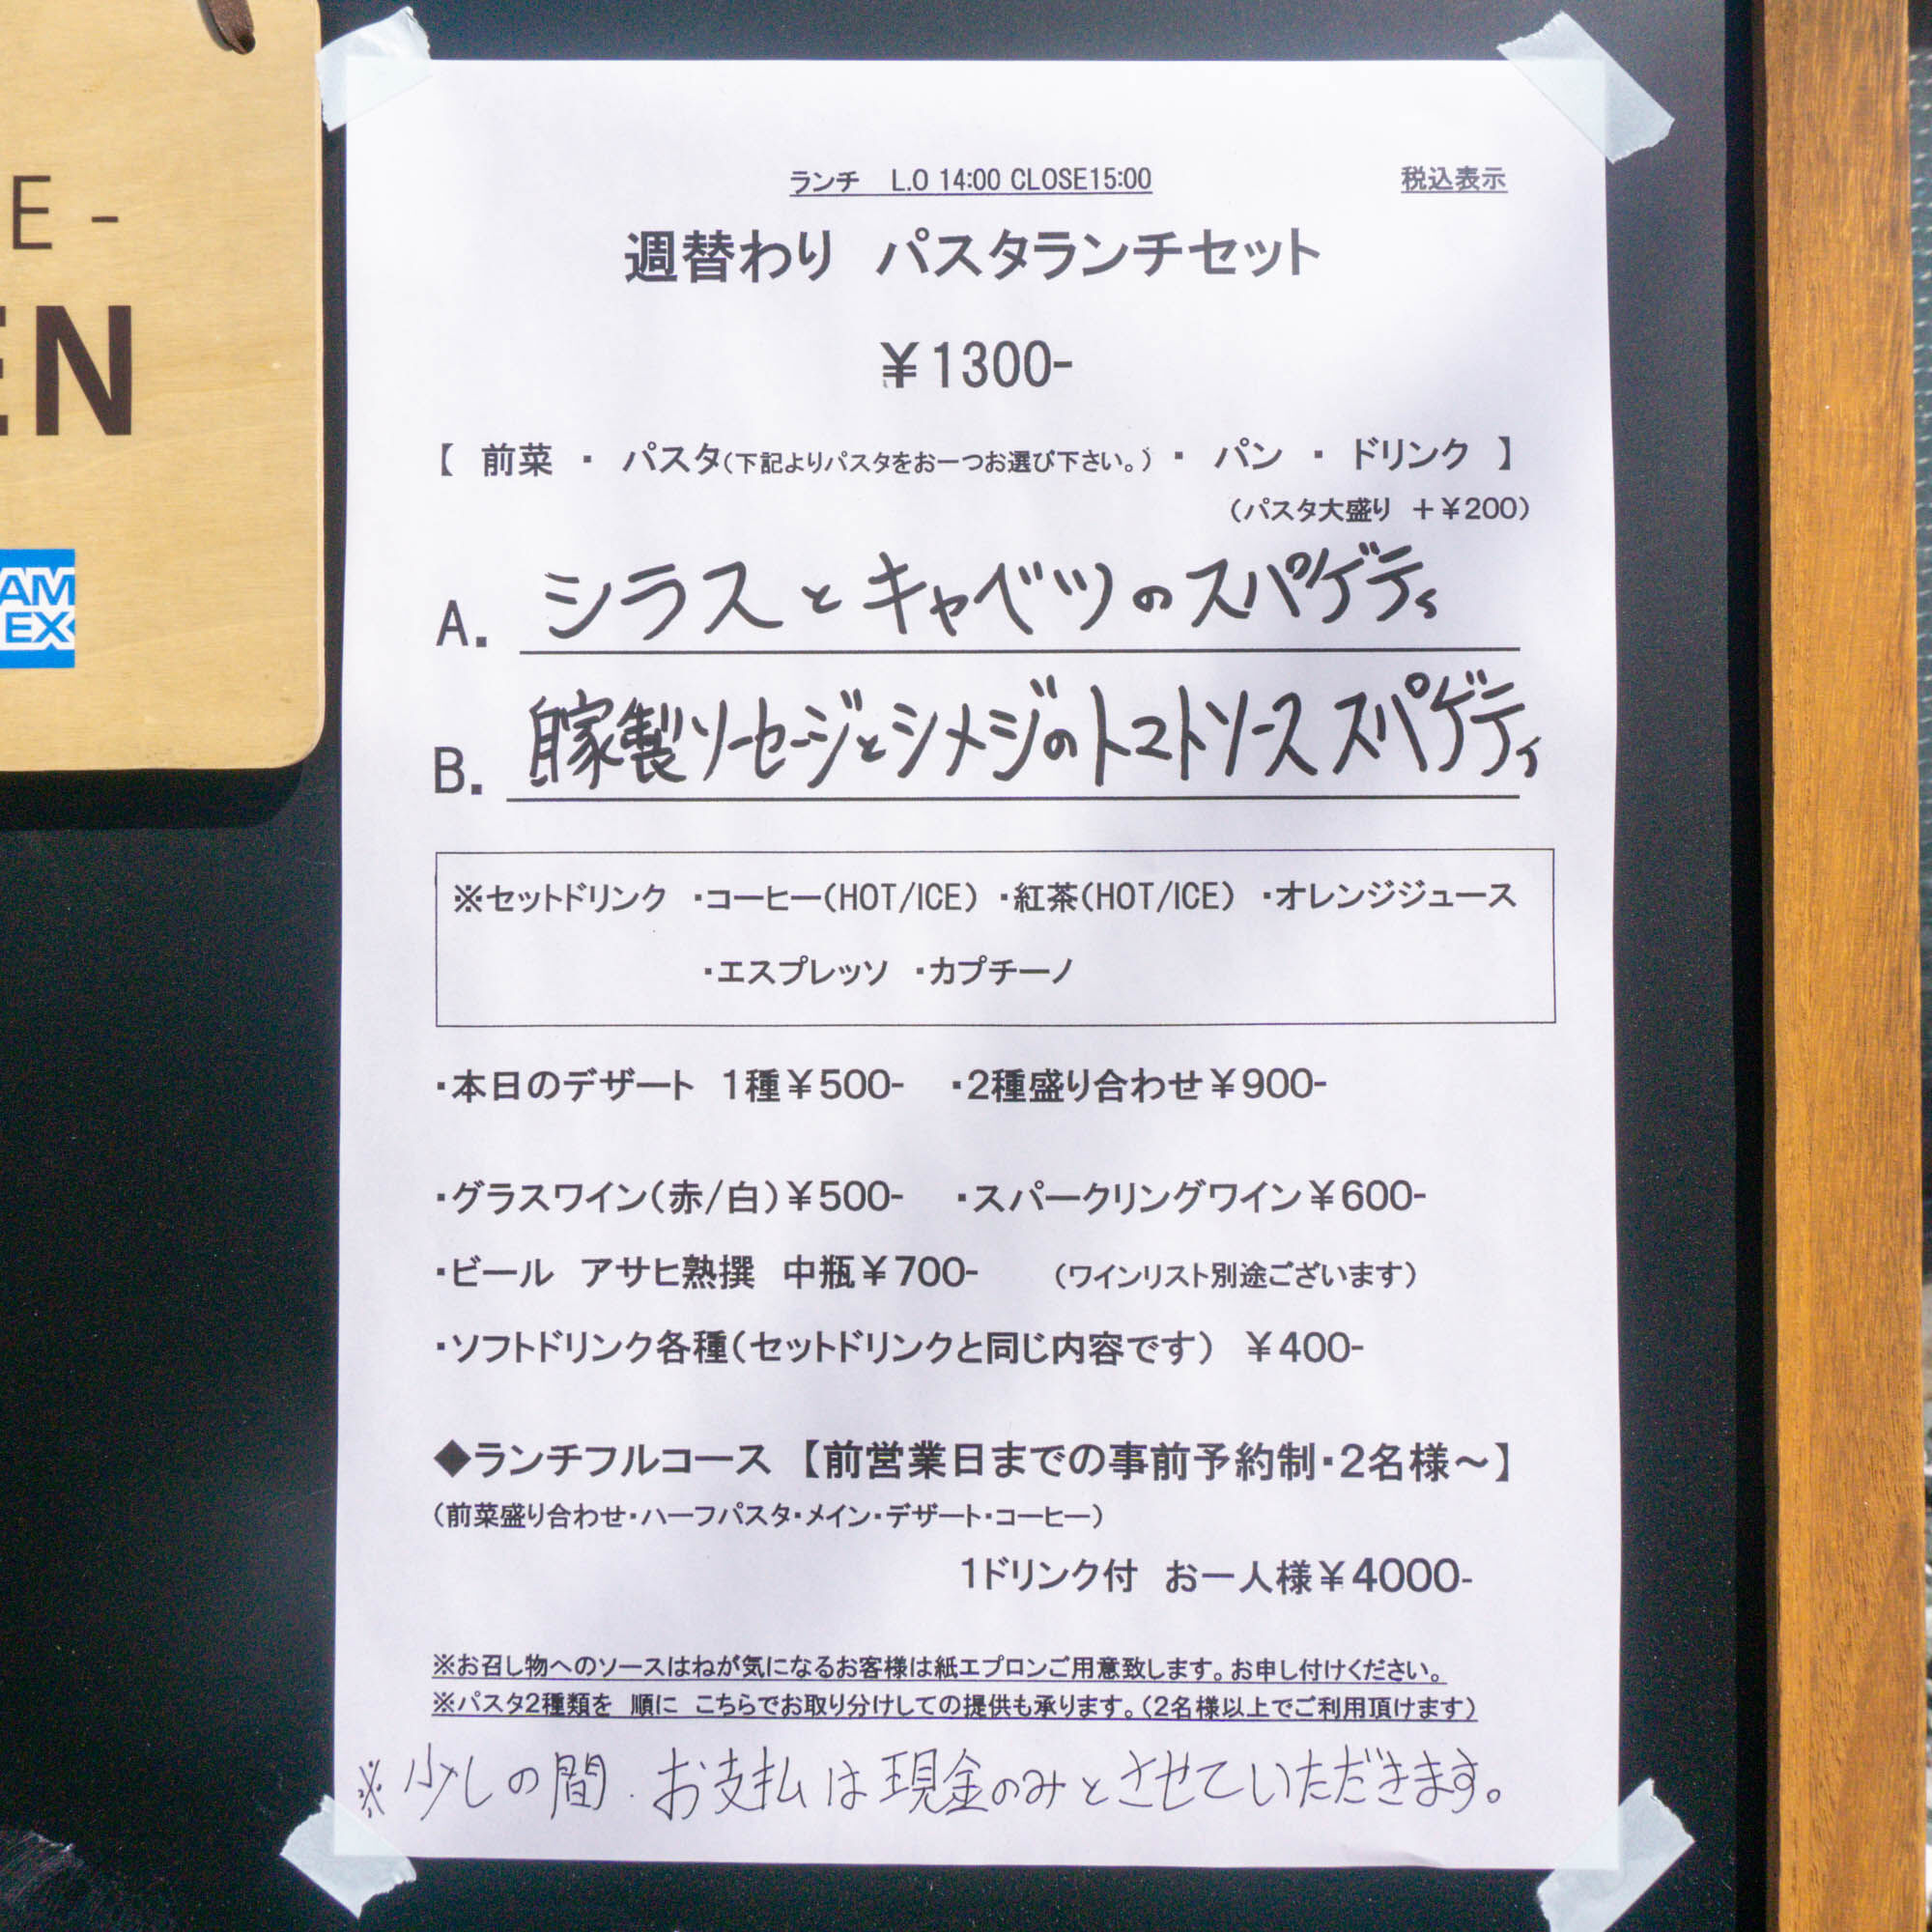 E -
EN
AM
EX
ランチ L.O 14:00 CLOSE15:00 税込表示
週替わり パスタランチセット
¥1300-
【 前菜 ・ パスタ(下記よりパスタをお一つお選び下さい。) ・ パン ・ ドリンク 】
(パスタ大盛り +¥200)
A. シラスとキャベツのスパゲティ
B. 自家製ソーセージとシメジのトマトソーススパゲティ
※セットドリンク ・コーヒー(HOT/ICE) ・紅茶(HOT/ICE) ・オレンジジュース
・エスプレッソ ・カプチーノ
・本日のデザート 1種¥500- ・2種盛り合わせ¥900-
・グラスワイン(赤/白)¥500- ・スパークリングワイン¥600-
・ビール アサヒ熟撰 中瓶¥700- (ワインリスト別途ございます)
・ソフトドリンク各種(セットドリンクと同じ内容です) ¥400-
◆ランチフルコース 【前営業日までの事前予約制・2名様~】
(前菜盛り合わせ・ハーフパスタ・メイン・デザート・コーヒー)
1ドリンク付 お一人様¥4000-
※お召し物へのソースはねが気になるお客様は紙エプロンご用意致します。お申し付けください。
※パスタ2種類を 順に こちらでお取り分けしての提供も承ります。(2名様以上でご利用頂けます)
※少しの間.お支払は現金のみとさせていただきます。